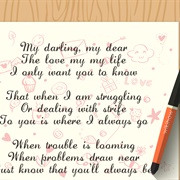 My darling, my dear
The love my my life
I only want you to know
That when I am struggling
Or dealing with strife
To you is where I always go
When trouble is looming
When problems draw near
just know that you'll always be